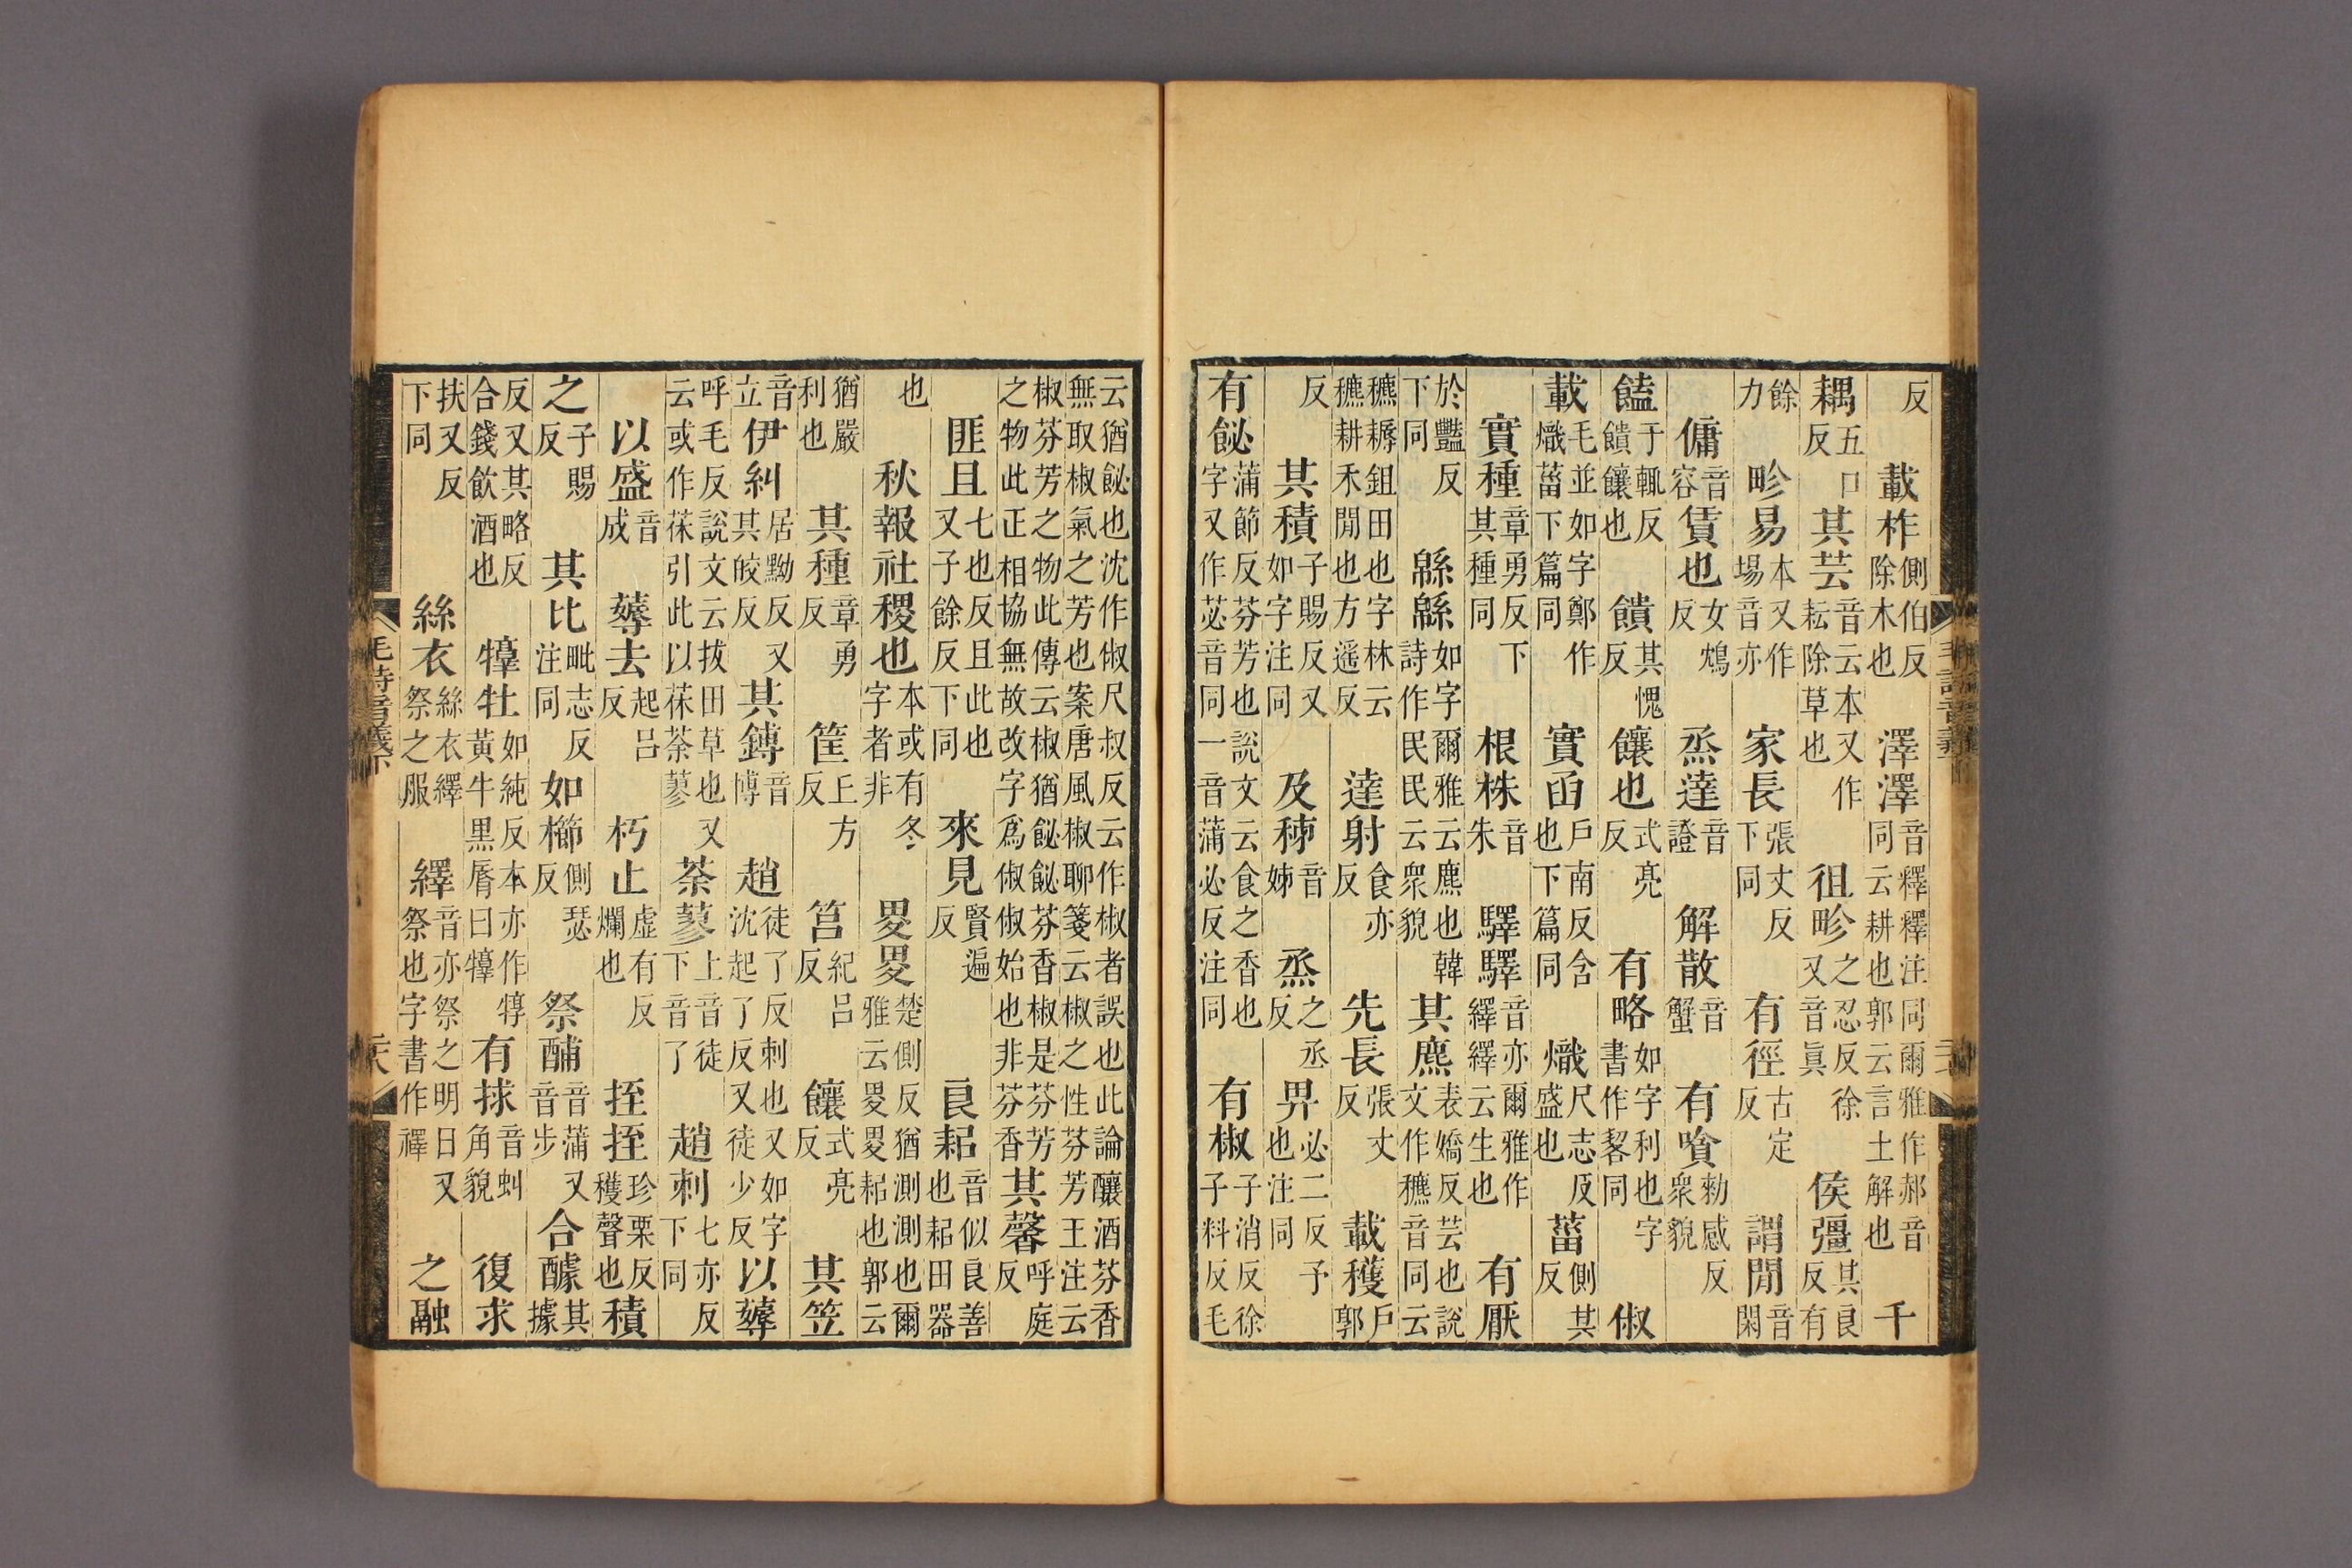 反　載柞側伯反除木也　澤澤音釋釋注同爾雅作郝音同云耕也郭云言土解也　千
耦五口反　其芸音云本又作耘除草也　徂畛之忍反徐又音眞　侯彊其良反有
餘力　畛易本又作場音亦　家長張丈反下同　有徑古定反　謂閒音閑
傭音容　賃也女鴆反　烝達音證　解散音蟹　有嗿勑感反衆貌
饁于輒反饋饟也　饋其愧反　饟也式亮反　有略如字利也字書作䂮同　俶
載毛並如字鄭作熾菑下篇同　實函戶南反含也下篇同　熾尺志反盛也　菑側其反
實種章勇反下其種同　根株音朱　驛驛音亦爾雅作繹繹云生也　有厭
於豔反下同　緜緜如字爾雅云麃也韓詩作民民云衆貌　其麃表嬌反芸也說文作穮音同云
穮耨鉏田也字林云穮耕禾閒也方遥反　達射食亦反　先長張丈反　載穫戶郭
反　其積子賜反又如字注同　及秭音姊　烝之丞反　畀必二反予也注同
有飶蒲節反芬芳也說文云食之香也字又作苾音同一音蒲必反注同　有椒子消反徐子料反毛
云猶飶也沈作俶尺叔反云作椒者誤也此論釀酒芬香無取椒氣之芳也案唐風椒聊箋云椒之性芬芳王注云
椒芬芳之物此傳云椒猶飶飶芬香椒是芬芳之物此正相協無故改字爲俶俶始也非芬香　其馨呼庭反
匪且七也反且此也又子餘反下同　來見賢遍反　良耜音似良善也耜田器
也　秋報社稷也本或有冬字者非　畟畟楚側反猶測測也爾雅云畟畟耜也郭云
猶嚴利也　其種章勇反　筐上方反　筥紀呂反　饟式亮反　其笠
音立　伊糾居黝反又其皎反　其鎛音博　趙徒了反刺也又如字沈起了反又徒少反　以薅
呼毛反說文云拔田草也又云或作茠引此以茠荼蓼　荼蓼上音徒下音了　趙刺七亦反下同
以盛音成　薅去起呂反　朽止虛有反爛也　挃挃珍栗反穫聲也　積
之子賜反　其比毗志反注同　如櫛側瑟反　祭酺音蒲又音步　合醵其據
反又其略反合錢飲酒也　犉牡如純反本亦作犉黃牛黑脣曰犉　有捄音虯角貌　復求
扶又反下同　絲衣絲衣繹祭之服　繹音亦祭之明日又祭也字書作襗　之融
毛詩音義下